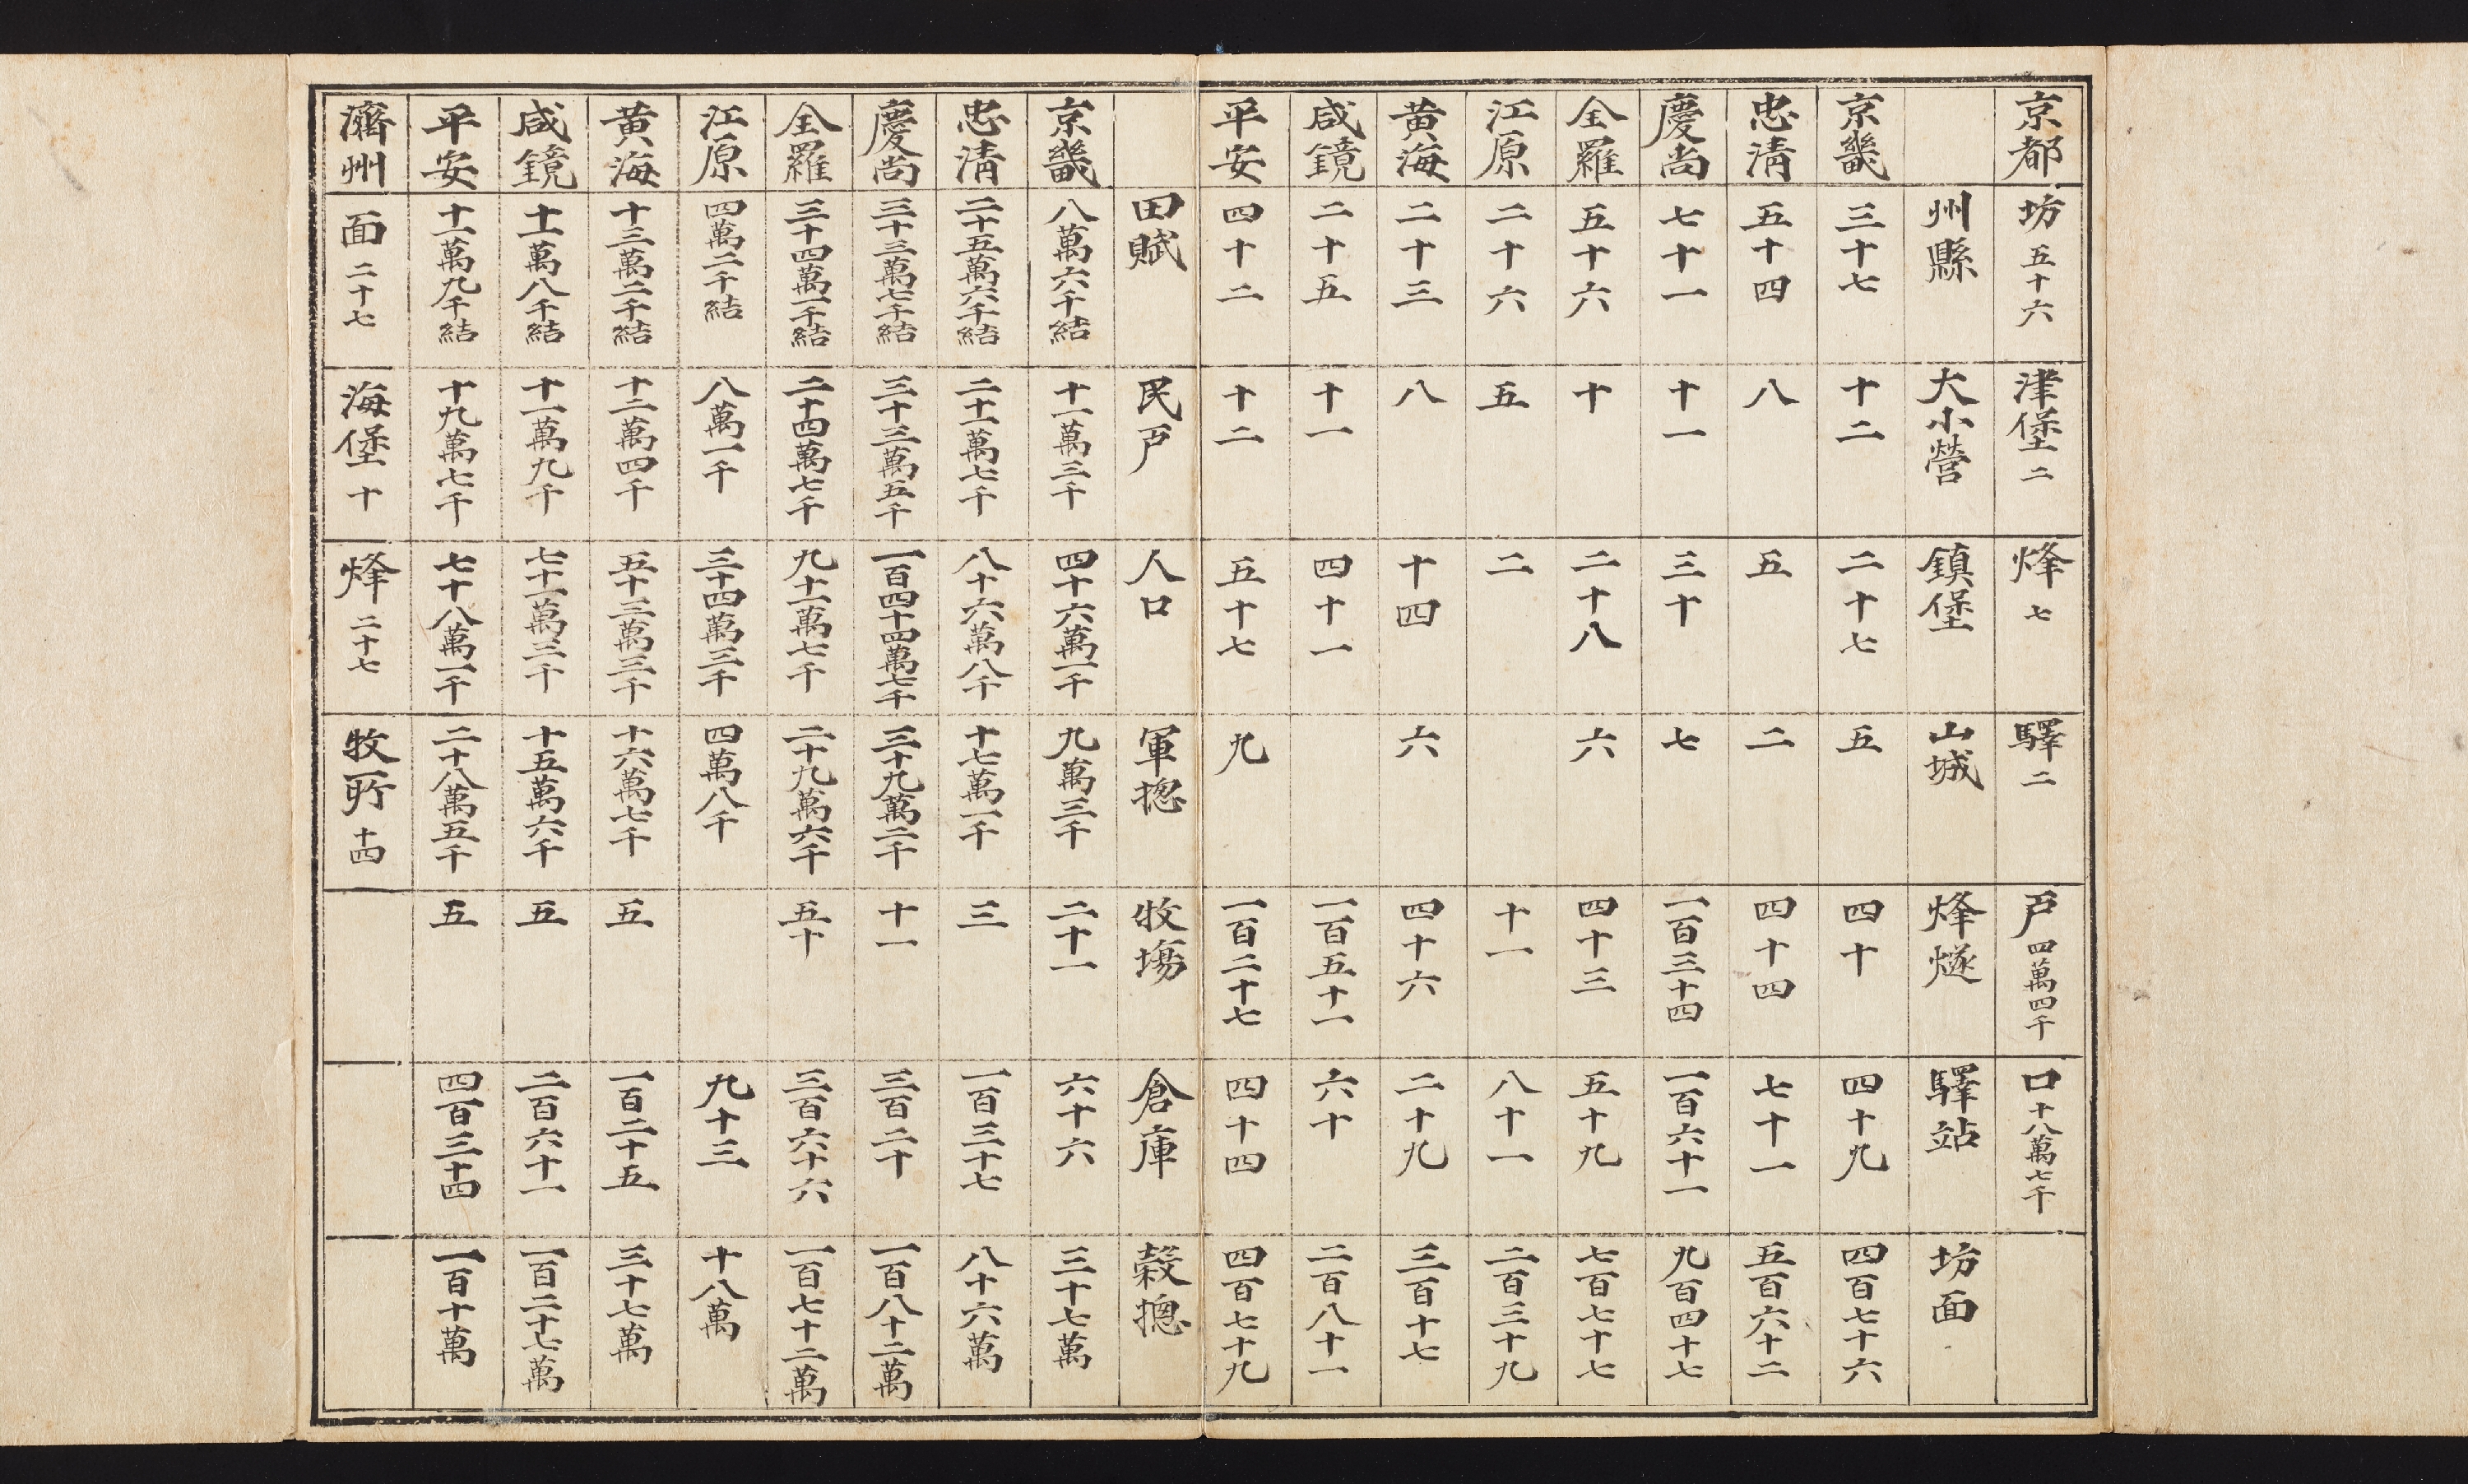 京都 坊五十六 津堡二 烽七 驛二 戸四萬四千 口十八萬七千
州縣 大小營 鎮堡 山城 烽燧 驛站 坊面
京畿 三十七 十二 二十七 五 四十 四十九 四百七十六
忠清 五十四 八 五 二 四十四 七十一 五百六十二
慶尚 七十一 十一 三十 七 一百三十四 一百六十一 九百四十七
全羅 五十六 十 二十八 六 四十三 五十九 七百七十七
江原 二十六 五 二 十一 八十一 二百三十九
黃海 二十三 八 十四 六 四十六 二十九 三百十七
咸鏡 二十五 十一 四十一 一百五十一 六十 二百八十一
平安 四十二 十二 五十七 九 一百二十七 四十四 四百七十九
田賦 民戸 人口 軍摠 牧塲 倉庫 穀摠
京畿 八萬六千結 十一萬三千 四十六萬一千 九萬三千 二十一 六十六 三十七萬
忠清 二十五萬六千結 二十一萬七千 八十六萬八千 十七萬一千 三 一百三十七 八十六萬
慶尚 三十三萬七千結 三十三萬五千 一百四十四萬七千 三十九萬二千 十一 三百二十 一百八十二萬
全羅 三十四萬一千結 二十四萬七千 九十一萬七千 二十九萬六千 五十 三百六十六 一百七十二萬
江原 四萬二千結 八萬一千 三十四萬三千 四萬八千 九十三 十八萬
黃海 十三萬二千結 十二萬四千 五十三萬三千 十六萬七千 五 一百二十五 三十七萬
咸鏡 十一萬八千結 十一萬九千 七十一萬三千 十五萬六千 五 二百六十一 一百二十七萬
平安 十一萬九千結 十九萬七千 七十八萬一千 二十八萬五千 五 四百三十四 一百十萬
濟州 面二十七 海堡十 烽二十七 牧所十四